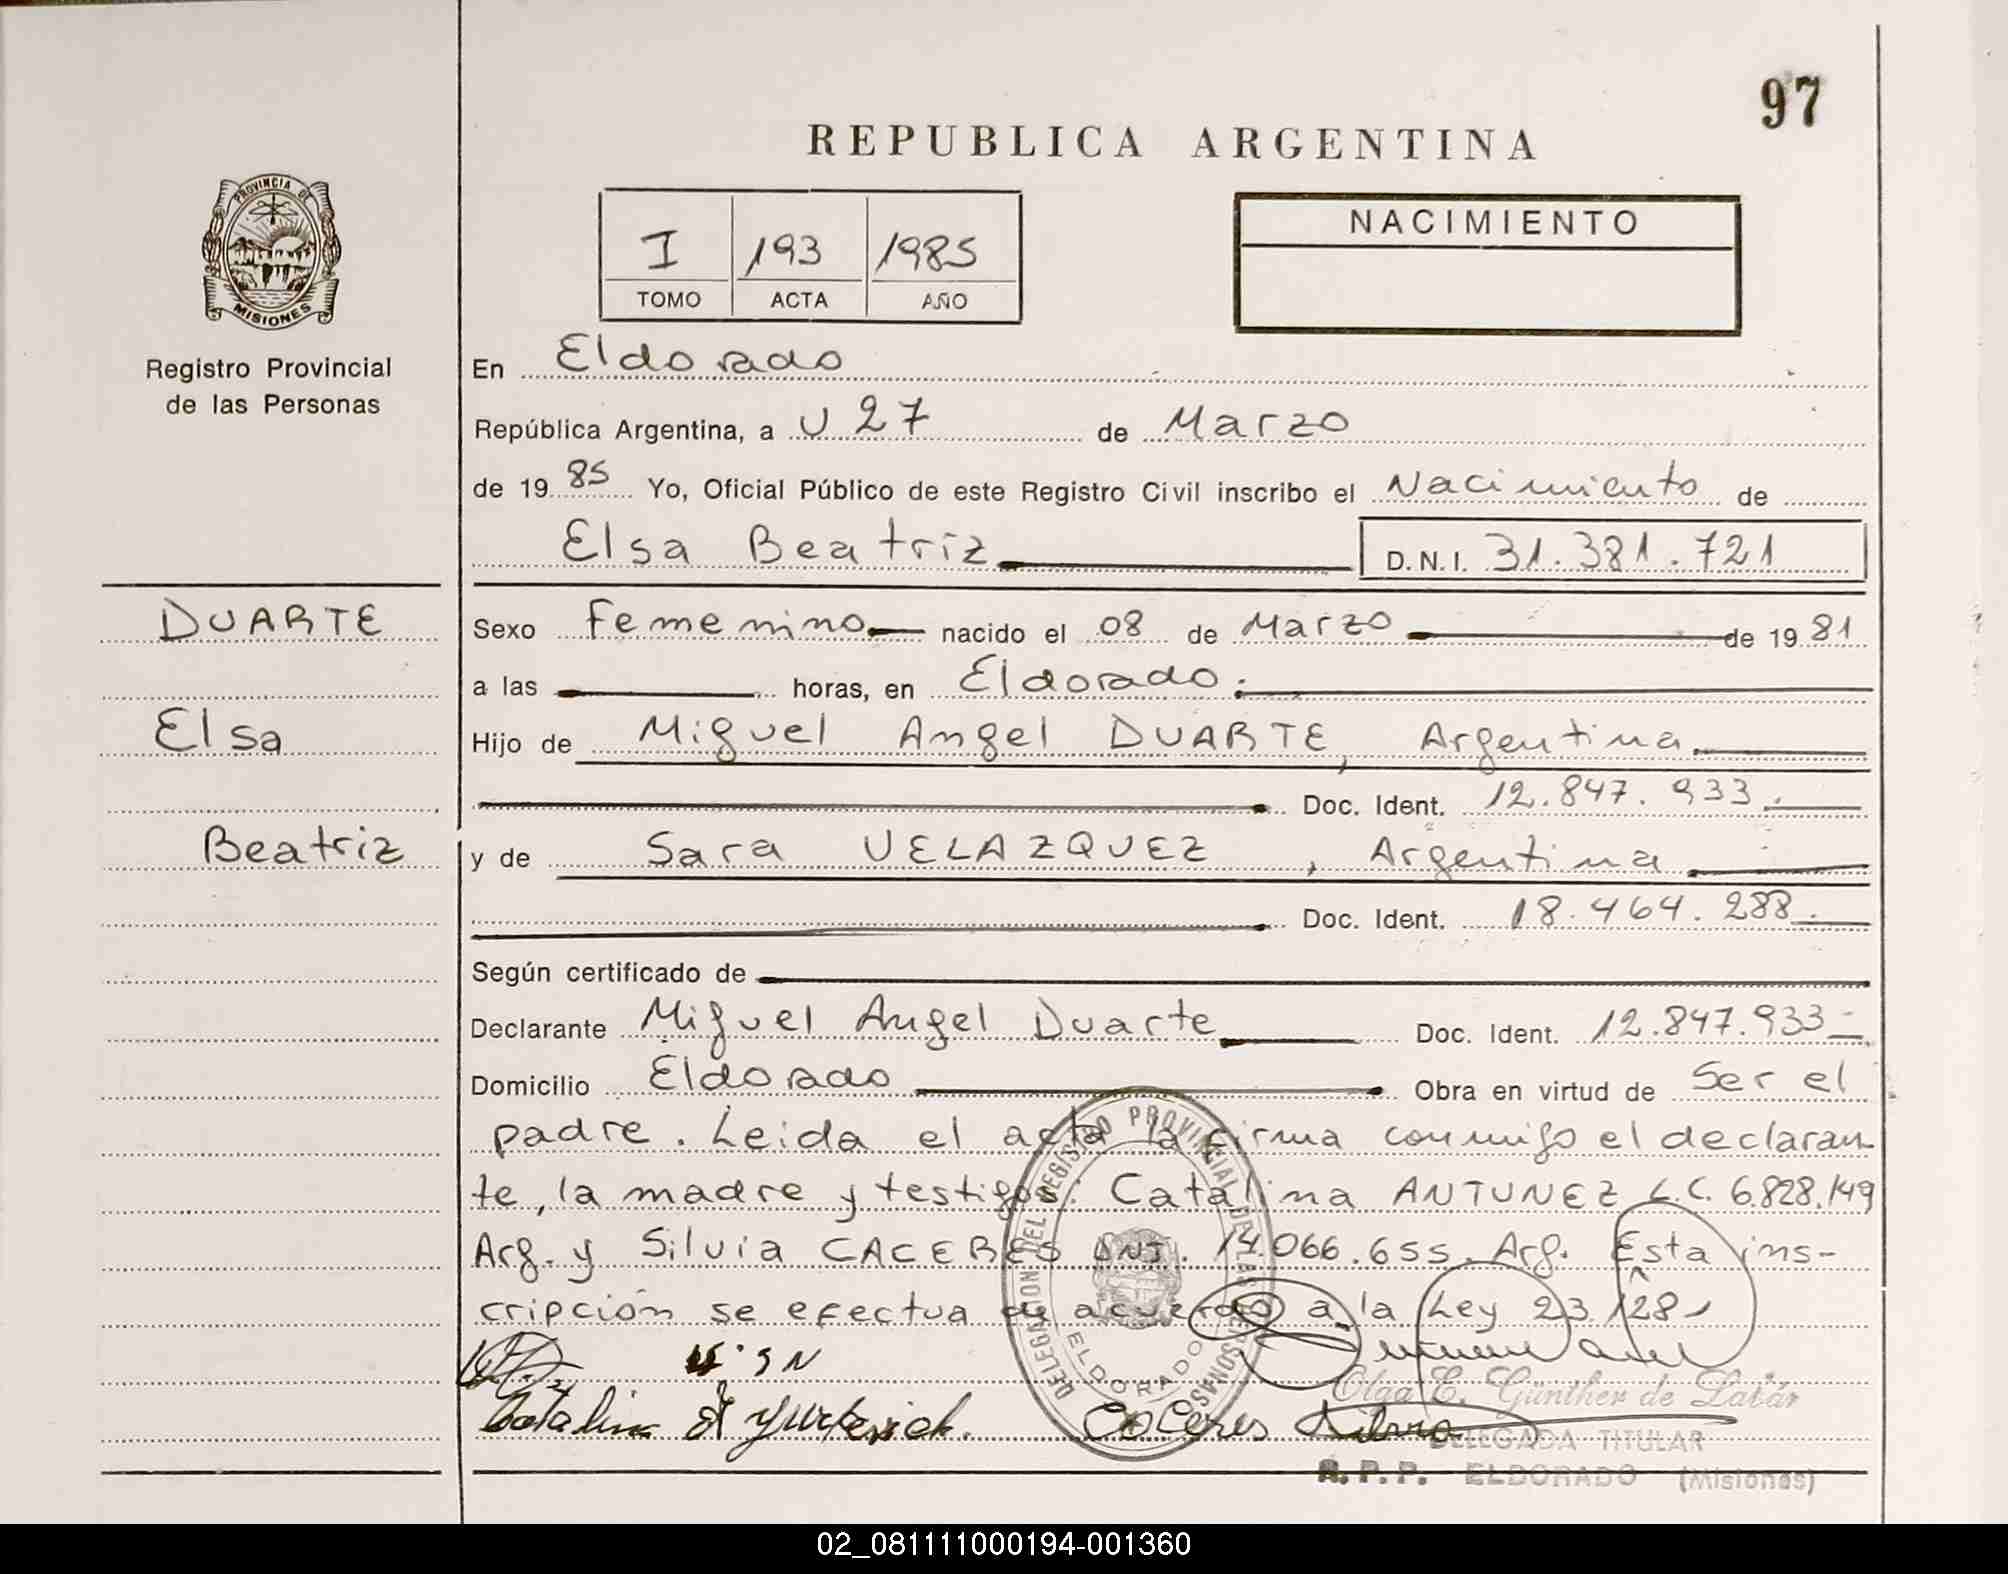 97
REPUBLICA ARGENTINA
PROVINCIA DE
MISIONES
Registro Provincial
de las Personas
I 193 1985
TOMO ACTA AÑO
NACIMIENTO
En Eldorado
República Argentina, a U 27 de Marzo
de 19 85 Yo, Oficial Público de este Registro Civil inscribo el Nacimiento de
Elsa Beatriz D.N.I. 31.381.721
DUARTE
Elsa
Beatriz
Sexo Femenino nacido el 08 de Marzo de 19 81
a las horas, en Eldorado.
Hijo de Miguel Angel DUARTE, Argentina
Doc. Ident. 12.847.933.
y de Sara VELAZQUEZ, Argentina
Doc. Ident. 18.464.288.
Según certificado de
Declarante Miguel Angel Duarte Doc. Ident. 12.847.933
Domicilio Eldorado Obra en virtud de Ser el
padre. Leida el acta la firma conmigo el declaran
te, la madre y testigos: Catalina ANTUNEZ L.C. 6.828.149
Arg. y Silvia CACERES DNI. 14.066.655. Arg. Esta ins-
cripción se efectua de acuerdo a la Ley 23.128
DELEGACION DEL REGISTRO PROVINCIAL DE LAS PERSONAS
ELDORADO
Olga E. Günther de Latár
Catalina A Yurkevich. Caceres Silvia
DELEGADA TITULAR
R.P.P. ELDORADO (Misiones)
02_081111000194-001360